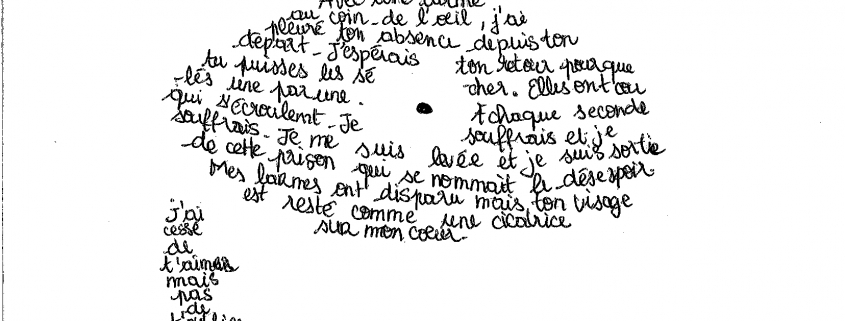 Avec une larme
au coin de l'œil, j'ai
pleuré ton absence depuis ton
départ - J'espérais ton retour pour que
tu puisses les sé cher. Elles ont cou
-lés une par une. à chaque seconde
qui s'écroulent - Je souffrais et je
souffrais - Je me suis lavée et je suis sortie
de cette prison qui se nommait le désespoir.
Mes larmes ont disparu mais ton visage
est resté comme une cicatrice
sur mon cœur.
J'ai
cessé
de
t'aimer
mais
pas
de